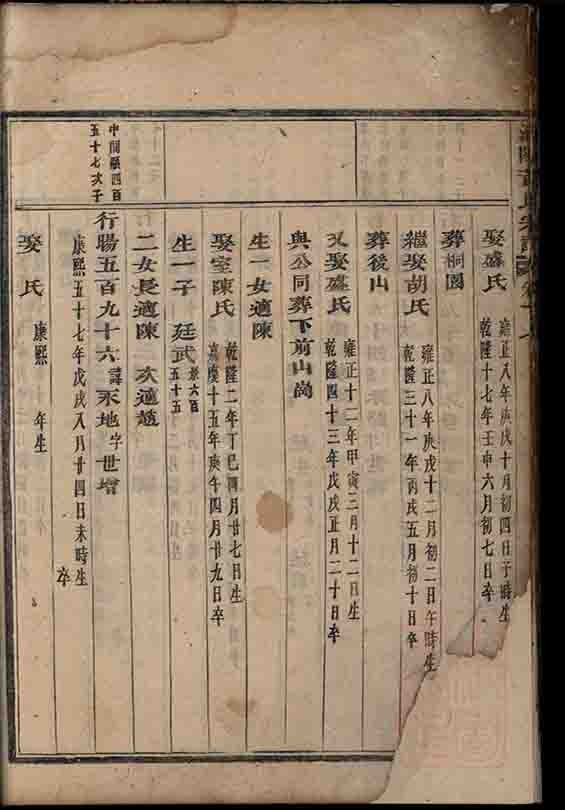 娶盛氏
雍正八年庚戌十月初四日子時生
乾隆十七年壬申六月初七日卒
葬桐園
繼娶胡氏
雍正八年庚戌十二月初二日午時生
乾隆三十一年丙戌五月初十日卒
葬後山
又娶盛氏
雍正十二年甲寅三月十二日生
乾隆四十三年戊戌正月二十日卒
與公同葬下前山崗
生一女適陳
娶室陳氏
乾隆二年丁巳四月廿七日生
嘉慶十五年庚午四月廿九日卒
生一子 廷武
六百
五十五
二女長適陳 次適趙
中 四百
五十七次子
行賜五百九十六諱永地字世增
康熙五十七年戊戌八月廿四日未時生
卒
娶 氏
康熙 年生